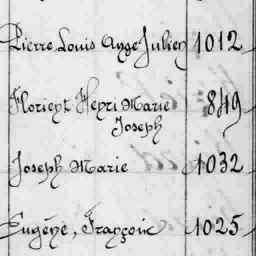 Pierre Louis Ange Julien 1012
Florient Henri Marie 849
Joseph
Joseph Marie 1032
Eugène, François 1025